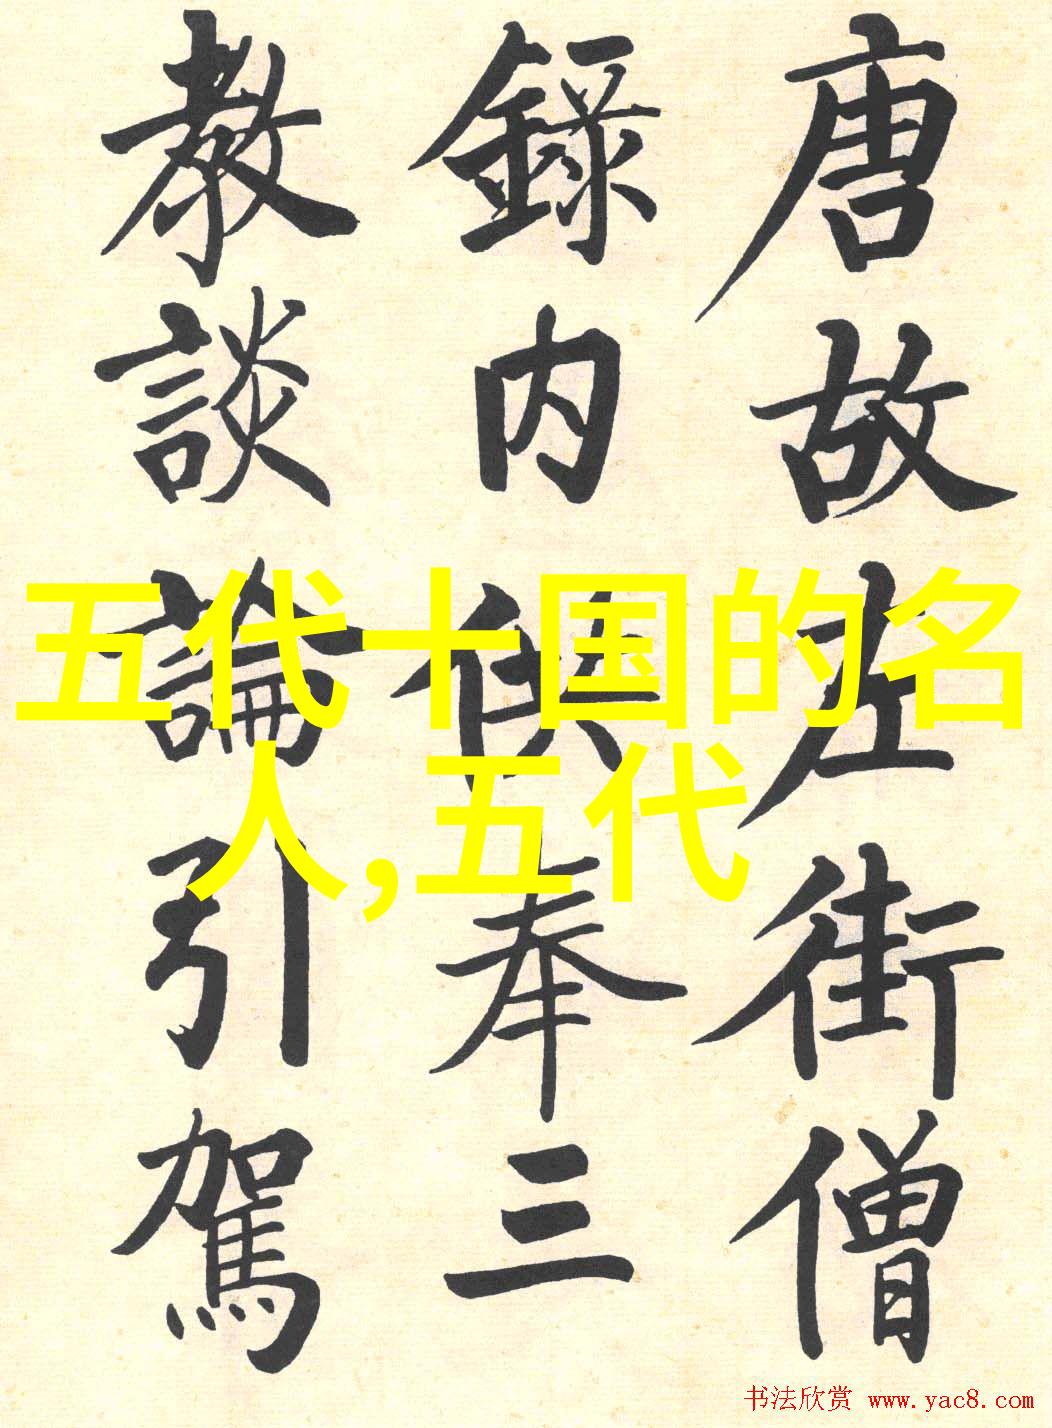 唐故左街僧
錄内供奉三
教談論引駕
五代十国的名
人,五代
书法欣赏 www.yac8.com